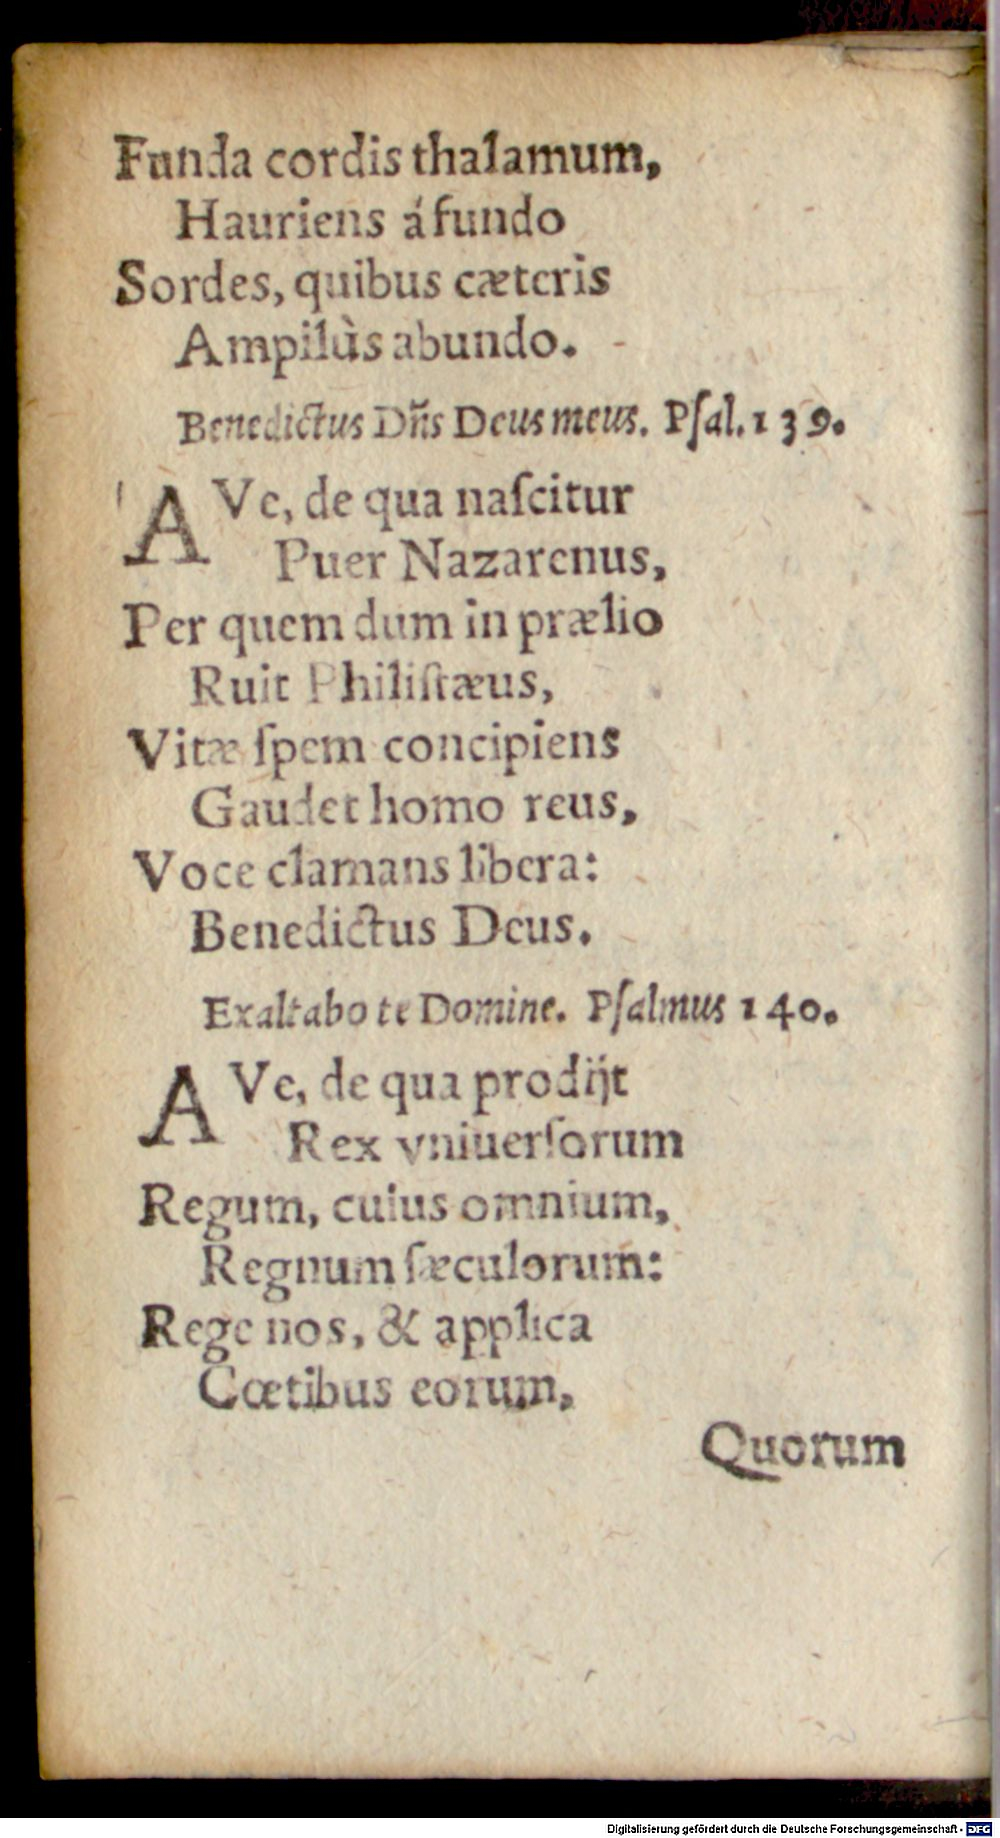 Funda cordis thalamum,
Hauriens á fundo
Sordes, quibus cæteris
Ampilùs abundo.
Benedictus Dñs Deus meus. Pſal. 139.
AVe, de qua naſcitur
Puer Nazarenus,
Per quem dum in prælio
Ruit Philiſtæus,
Vitæ ſpem concipiens
Gaudet homo reus,
Voce clamans libera:
Benedictus Deus.
Exaltabo te Domine. Pſalmus 140.
AVe, de qua prodijt
Rex vniuerſorum
Regum, cuius omnium,
Regnum ſæculorum:
Rege nos, & applica
Cœtibus eorum,
Quorum
Digitalisierung gefördert durch die Deutsche Forschungsgemeinschaft - DFG